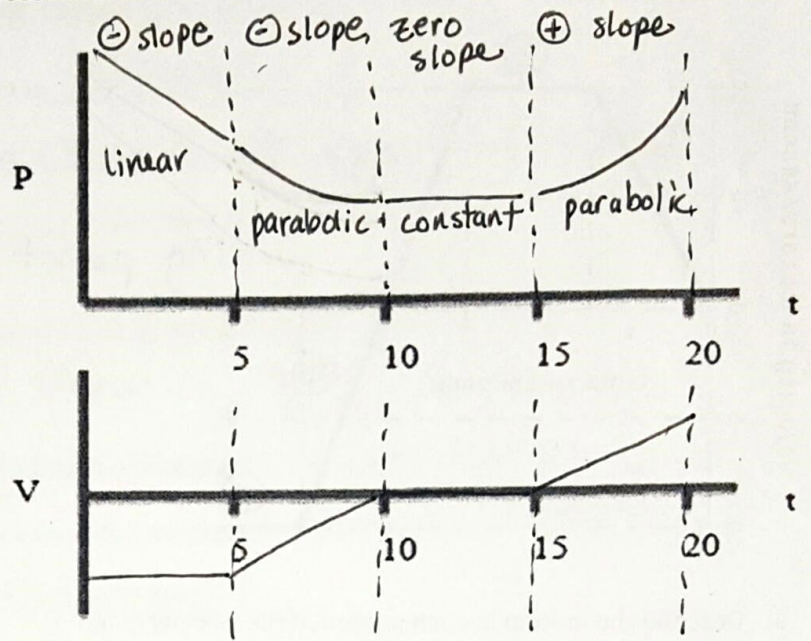 ⊖ slope ⊖ slope zero slope ⊕ slope
P
linear
parabolic constant parabolic
t
5 10 15 20
V
t
5 10 15 20